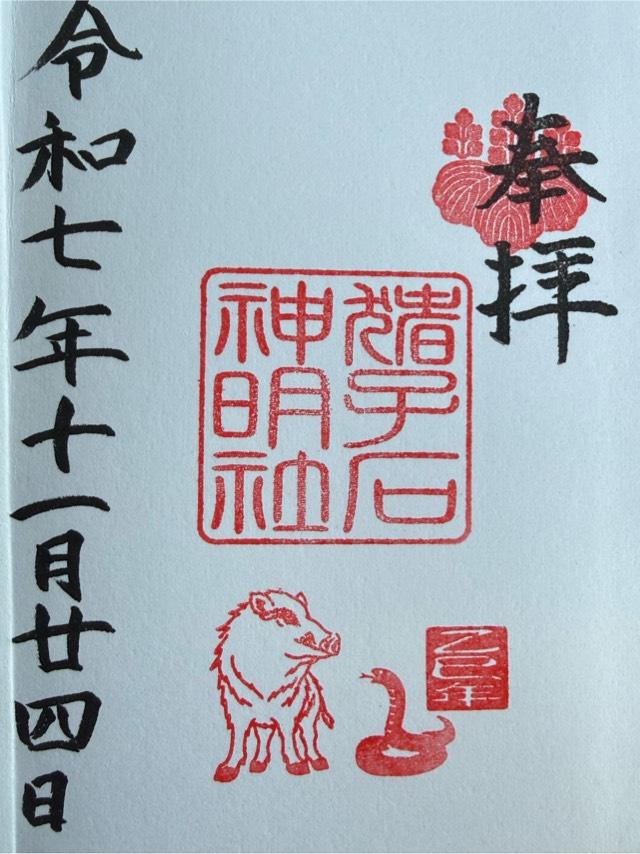 奉拝
猪子石
神明社
乙巳年
令和七年十一月廿四日